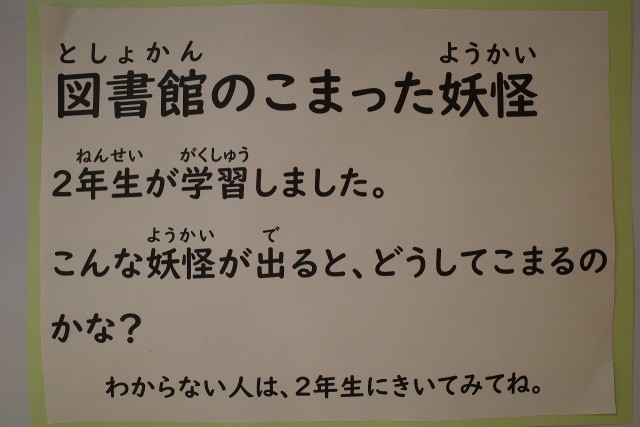 としょかん ようかい
図書館のこまった妖怪
ねんせい がくしゅう
2年生が学習しました。
ようかい で
こんな妖怪が出ると、どうしてこまるの
かな?
わからない人は、2年生にきいてみてね。